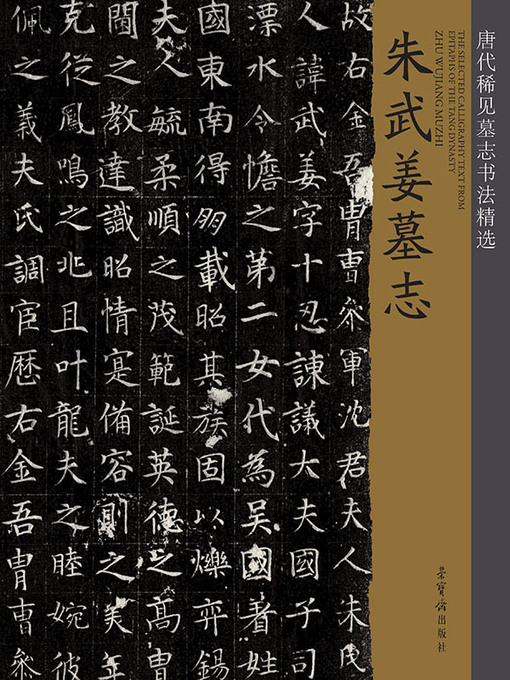 唐代稀见墓志书法精选
THE SELECTED CALLIGRAPHY TEXT FROM
EPITAPHS OF THE TANG DYNASTY
ZHU WUJIANG MUZHI
朱武姜墓志
荣宝斋出版社
故右金吾胄曹參軍沈君夫人朱氏
人諱武姜字十忍諫議大夫國子司
漂水令憺之第二女代為吴國著姓
國東南得朋載昭其族固以爍弈錫
夫人毓柔順之茂範誕英德之高胄
閫之教達識昭情寔備容則之美年
克從鳳鳴之兆且叶龍夫之睦婉彼
佩之義夫氏調宦歷右金吾胄曹參